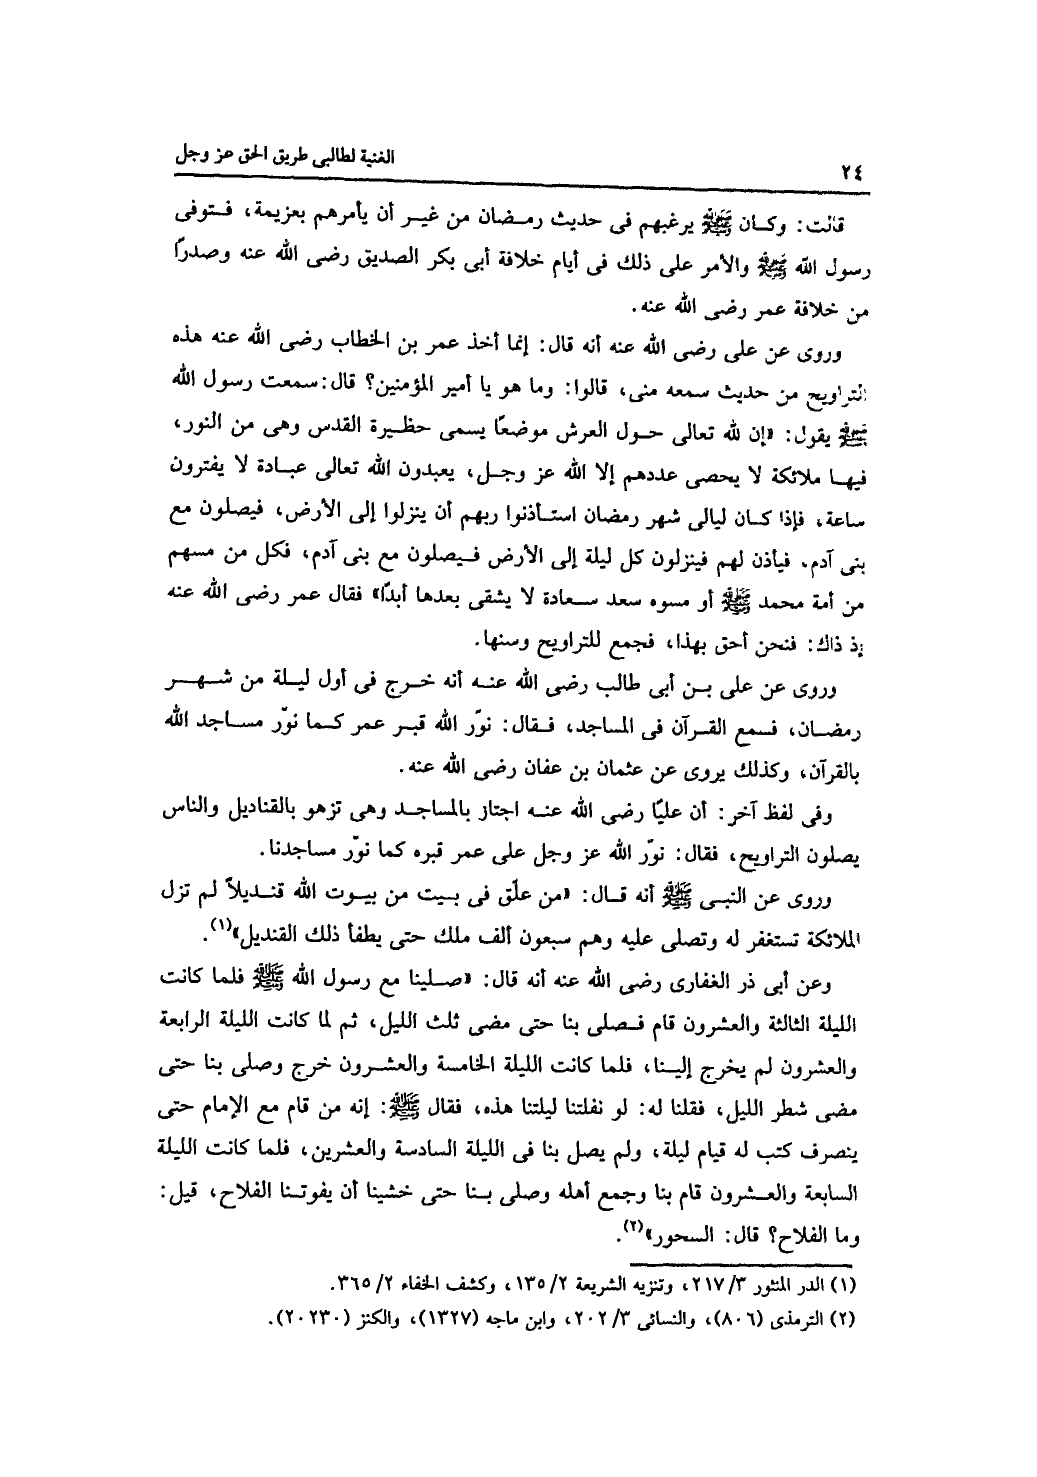 ٢٤
الغنية لطالبى طريق الحق عز وجل
قالت: وكان ﷺ يرغبهم فى حديث رمضان من غير أن يأمرهم بعزيمة، فتوفى
رسول الله ﷺ والأمر على ذلك فى أيام خلافة أبى بكر الصديق رضى الله عنه وصدرًا
من خلافة عمر رضى الله عنه.
وروى عن على رضى الله عنه أنه قال: إنما أخذ عمر بن الخطاب رضى الله عنه هذه
التراويح من حديث سمعه منى، قالوا: وما هو يا أمير المؤمنين؟ قال: سمعت رسول الله
ﷺ يقول: «إن لله تعالى حول العرش موضعًا يسمى حظيرة القدس وهى من النور،
فيها ملائكة لا يحصى عددهم إلا الله عز وجل، يعبدون الله تعالى عبادة لا يفترون
ساعة، فإذا كان ليالى شهر رمضان استأذنوا ربهم أن ينزلوا إلى الأرض، فيصلون مع
بنى آدم. فيأذن لهم فينزلون كل ليلة إلى الأرض فيصلون مع بنى آدم، فكل من مسهم
من أمة محمد ﷺ أو مسوه سعد سعادة لا يشقى بعدها أبدًا» فقال عمر رضى الله عنه
إذ ذاك: فنحن أحق بهذا، فجمع للتراويح وسنها.
وروى عن على بن أبى طالب رضى الله عنه أنه خرج فى أول ليلة من شهر
رمضان، فسمع القرآن فى المساجد، فقال: نوّر الله قبر عمر كما نوّر مساجد الله
بالقرآن، وكذلك يروى عن عثمان بن عفان رضى الله عنه.
وفى لفظ آخر: أن عليًا رضى الله عنه اجتاز بالمساجد وهى تزهو بالقناديل والناس
يصلون التراويح، فقال: نوّر الله عز وجل على عمر قبره كما نوّر مساجدنا.
وروى عن النبى ﷺ أنه قال: «من علّق فى بيت من بيوت الله قنديلاً لم تزل
الملائكة تستغفر له وتصلى عليه وهم سبعون ألف ملك حتى يطفأ ذلك القنديل»(١).
وعن أبى ذر الغفارى رضى الله عنه أنه قال: «صلينا مع رسول الله ﷺ فلما كانت
الليلة الثالثة والعشرون قام فصلى بنا حتى مضى ثلث الليل، ثم لما كانت الليلة الرابعة
والعشرون لم يخرج إلينا، فلما كانت الليلة الخامسة والعشرون خرج وصلى بنا حتى
مضى شطر الليل، فقلنا له: لو نفلتنا ليلتنا هذه، فقال ﷺ: إنه من قام مع الإمام حتى
ينصرف كتب له قيام ليلة، ولم يصل بنا فى الليلة السادسة والعشرين، فلما كانت الليلة
السابعة والعشرون قام بنا وجمع أهله وصلى بنا حتى خشينا أن يفوتنا الفلاح، قيل:
وما الفلاح؟ قال: السحور»(٢).
(١) الدر المنثور ٢١٧/٣، وتنزيه الشريعة ١٣٥/٢، وكشف الخفاء ٣٦٥/٢.
(٢) الترمذى (٨٠٦)، والنسائى ٢٠٢/٣، وابن ماجه (١٣٢٧)، والكنز (٢٠٢٣٠).